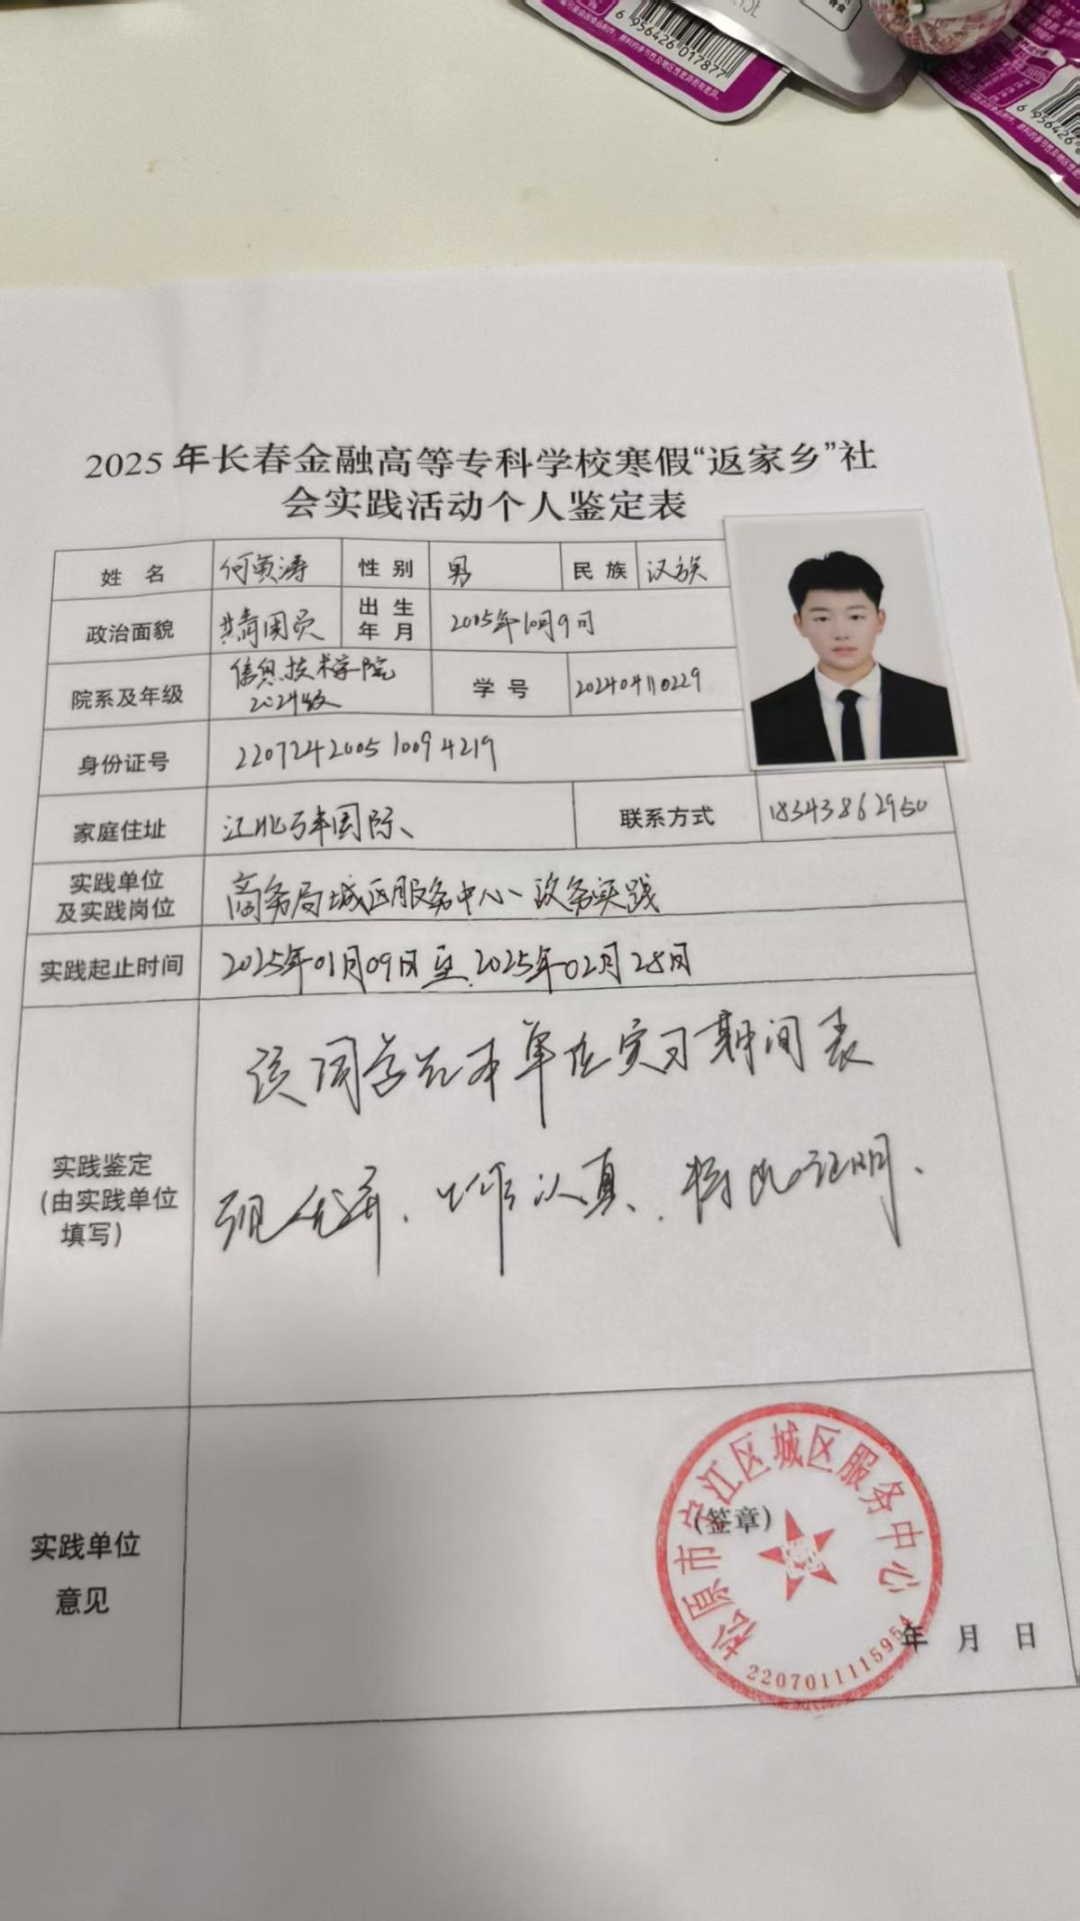 6 956426 017877
6 956426
2025年长春金融高等专科学校寒假“返家乡”社
会实践活动个人鉴定表
姓 名 何寅涛 性 别 男 民 族 汉族
政治面貌 共青团员 出 生 年 月 2005年10月9日
院系及年级 信息技术学院 2024级 学 号 202404110229
身份证号 220724200510094219
家庭住址 江北万丰国际、 联系方式 18343862950
实践单位
及实践岗位 商务局城区服务中心、政务实践
实践起止时间 2025年01月09日至2025年02月28日
实践鉴定
(由实践单位
填写)
该同学在本单位实习期间表
现优异、工作认真、特此证明、
实践单位
意见
(签章)
松原市宁江区城区服务中心
2207011115954
年 月 日